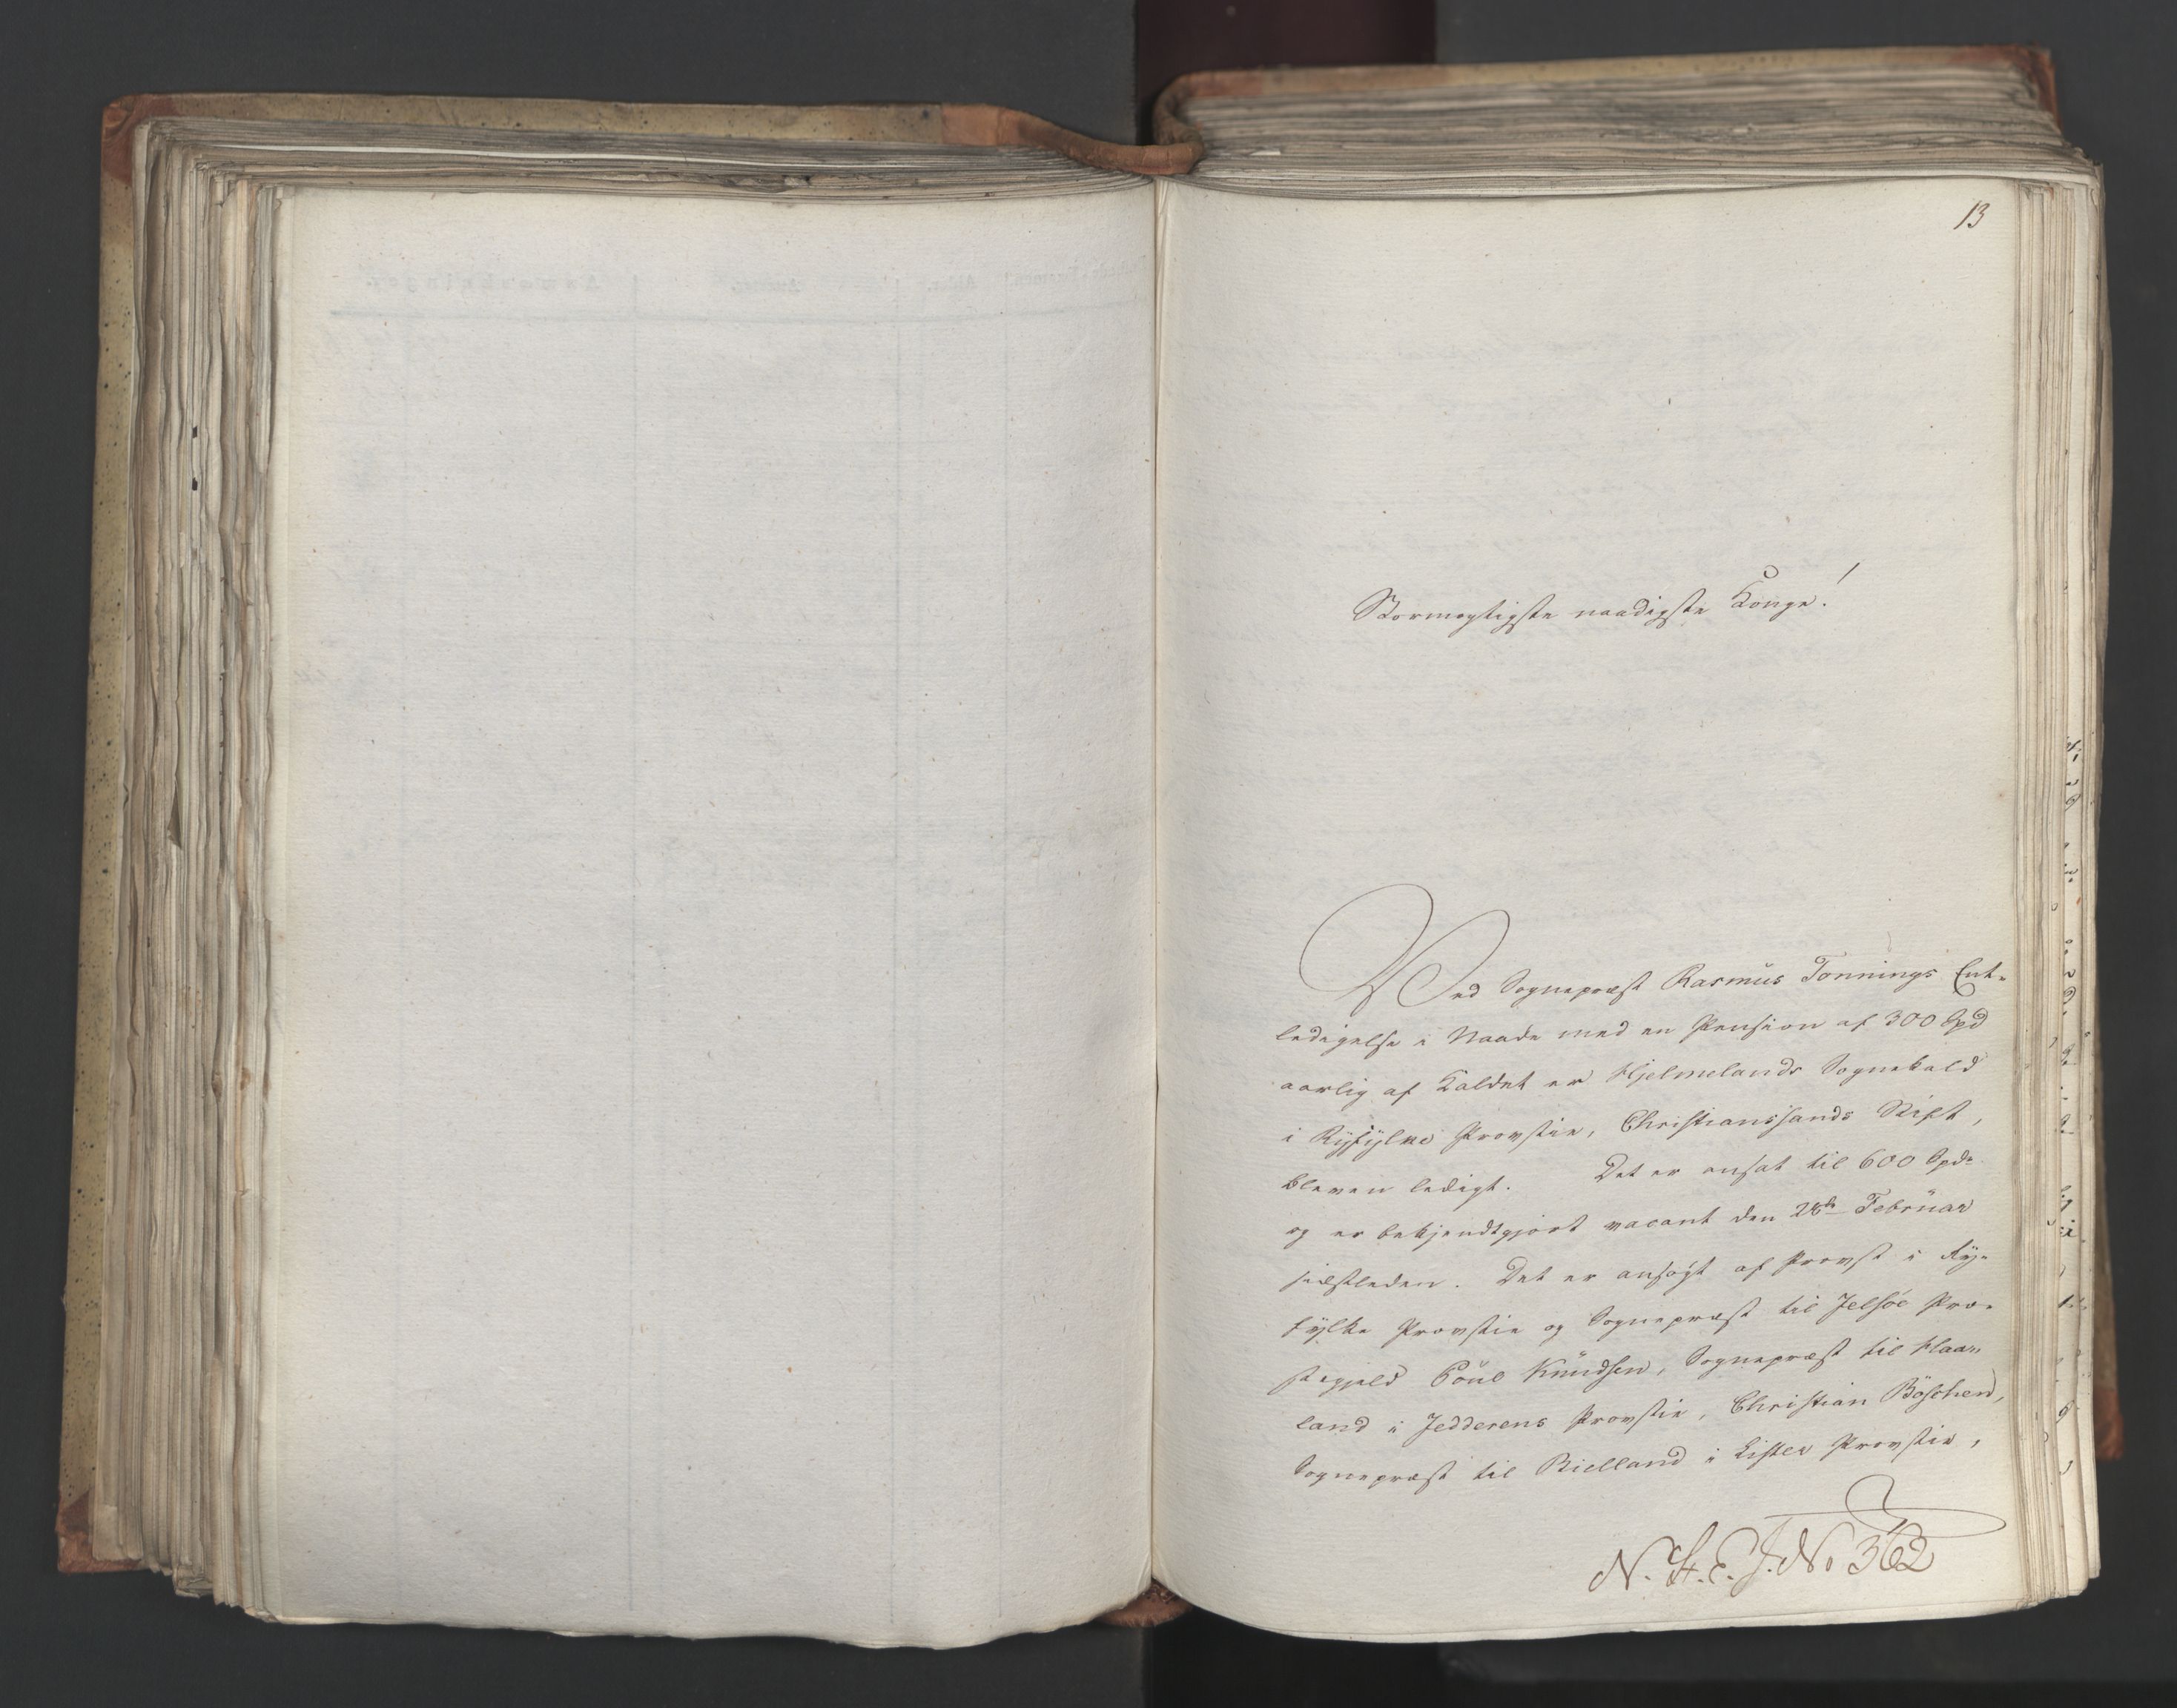 13
Stormægtigste naadigste Konge!
Ved Sognepræst Rasmus Tonnings Ent-
ledigelse i Naade med en Pension af 300 Spd
aarlig af Kaldet er Hjelmelands Sognekald
i Ryfylke Provstie, Christianssands Stift,
bleven ledigt. Det er ansat til 600 Spd.
og er bekjendtgjort vacant den 28de Februar
sidstleden. Det er ansøgt af Provst i Ry-
fylke Provstie og Sognepræst til Jelsøe Præ-
stegjeld Poul Knudsen, Sognepræst til Haa-
land i Jedderens Provstie, Christian Böschen,
Sognepræst til Bielland i Lister Provstie,
N. St. E. J. No 362